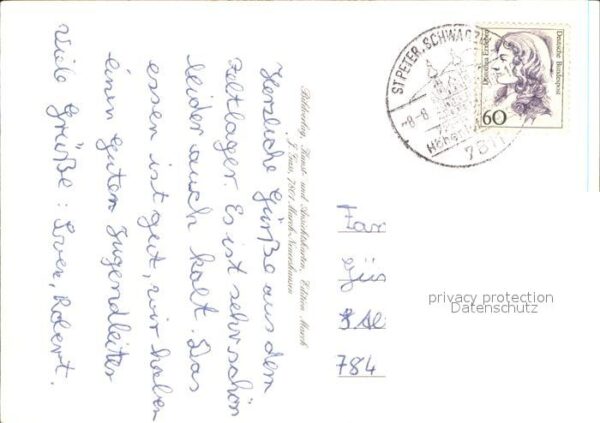 Herzliche Grüße aus dem
Zeltlager. Es ist sehr schön
leider auch kalt. Das
essen ist gut, wir haben
einen guten Jugendleiter
Viele Grüße: Sven, Robert.
Bildverlag, Kunst- und Ansichtskarten, Edition March
7801 March-Neuershausen
ST. PETER, SCHWARZW
-8-8
7811
Deutsche Bundespost
Dorothea Erxleben
60
Fam
Gü
784
privacy protection
Datenschutz